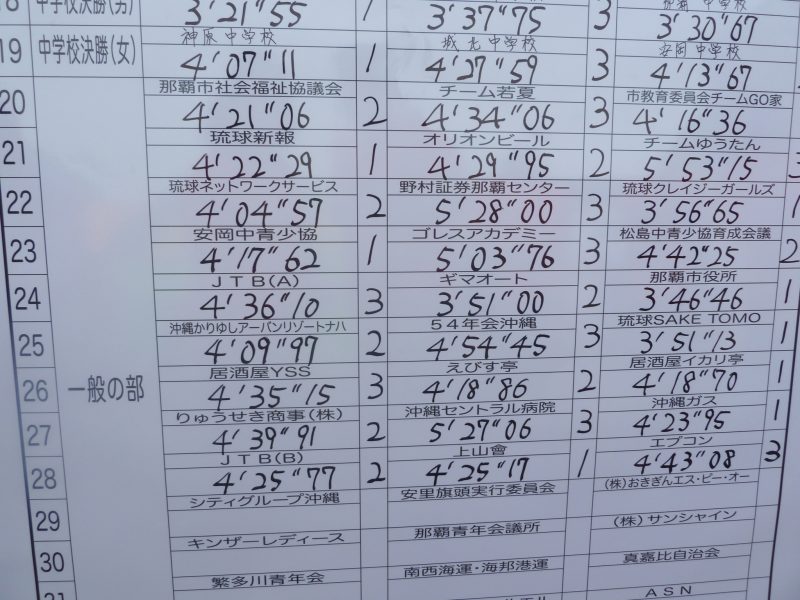 18 中学校決勝(男) 3'21"55 1 3'37"75 3 3'30"67
神原中学校 城北中学校 安岡中学校
19 中学校決勝(女) 4'07"11 1 4'27"59 3 4'13"67
那覇市社会福祉協議会 チーム若夏 市教育委員会チームGO家
20 4'21"06 2 4'34"06 3 4'16"36
琉球新報 オリオンビール チームゆうたん
21 4'22"29 1 4'29"95 2 5'53"15 3
琉球ネットワークサービス 野村証券那覇センター 琉球クレイジーガールズ
22 4'04"57 2 5'28"00 3 3'56"65 1
安岡中青少協 ゴレスアカデミー 松島中青少協育成会議
23 4'17"62 1 5'03"76 3 4'42"25 2
JTB(A) ギマオート 那覇市役所
24 4'36"10 3 3'51"00 2 3'46"46 1
沖縄かりゆしアーバンリゾートナハ 54年会沖縄 琉球SAKE TOMO
25 4'09"97 2 4'54"45 3 3'51"13 1
居酒屋YSS えびす亭 居酒屋イカリ亭
26 一般の部 4'35"15 3 4'18"86 2 4'18"70 1
りゅうせき商事(株) 沖縄セントラル病院 沖縄ガス
27 4'39"91 2 5'27"06 3 4'23"95 1
JTB(B) 上山會 エプコン
28 4'25"77 2 4'25"17 1 4'43"08 3
シティグループ沖縄 安里旗頭実行委員会 (株)おきぎんエス・ピー・オー
29
キンザーレディース 那覇青年会議所 (株)サンシャイン
30
繁多川青年会 南西海運・海邦港運 真嘉比自治会
31 ASN